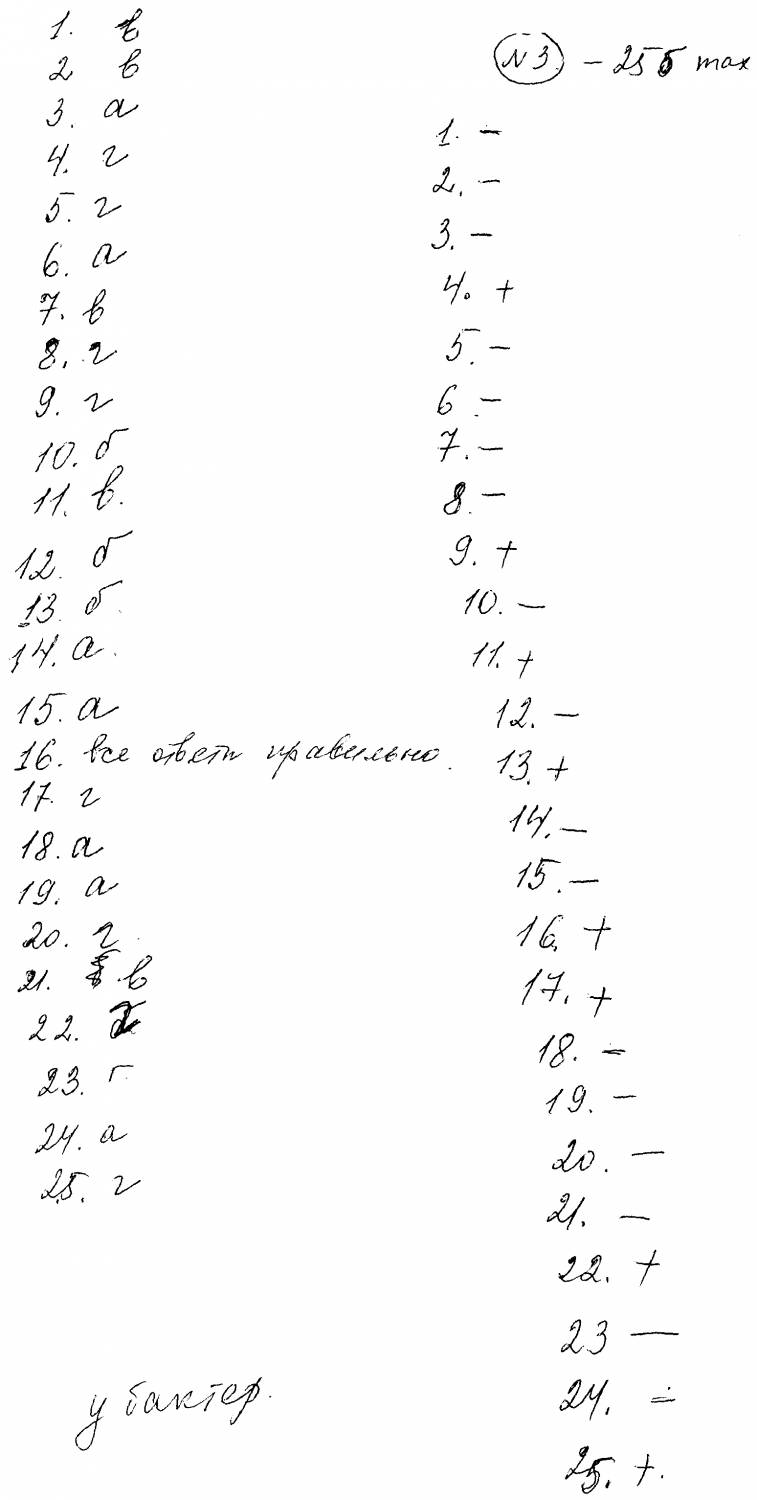 1. в
2 в
3. а
4. г
5. г
6. а
7. в
8. г
9. г
10. б
11. в.
12. б
13. б.
14. а.
15. а
16. все ответы правильно.
17. г
18. а
19. а
20. г.
21. в
22.
23. г
24. а
25. г
у бактер.
N3 – 25 б max
1. –
2. –
3. –
4. +
5. –
6. –
7. –
8. –
9. +
10. –
11. +
12. –
13. +
14. –
15. –
16. +
17. +
18. –
19. –
20. –
21. –
22. +
23 –
24. –
25. +.